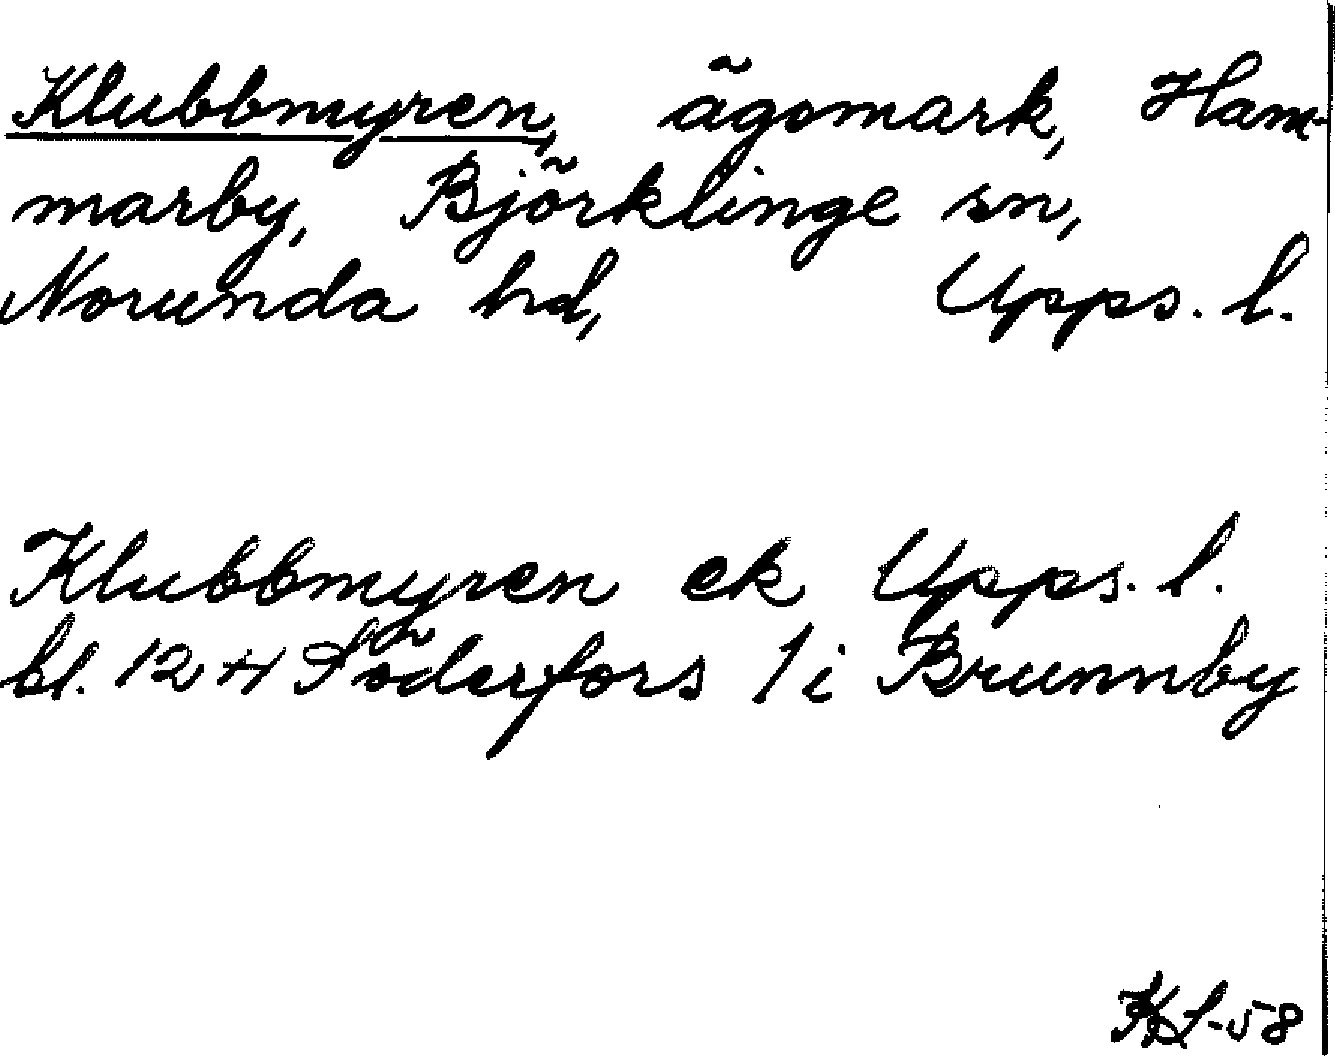 Klubbmyren, ägomark, Ham-
marby, Björklinge sn,
Norunda hd, Upps. l.
Klubbmyren ek Upps. l.
bl. 12 H Söderfors 1 i Brunnby
KL-58